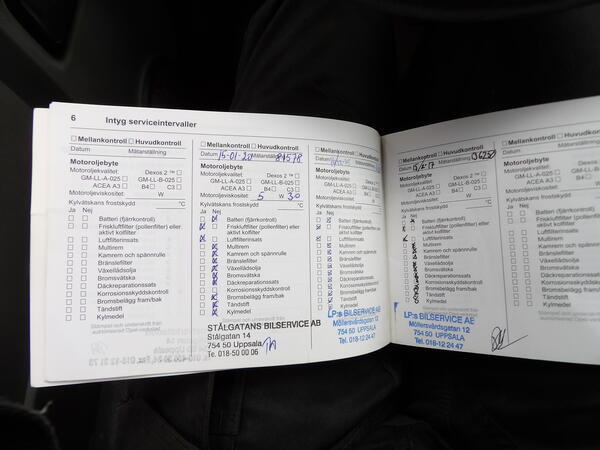 6 Intyg serviceintervaller
☐ Mellankontroll ☐ Huvudkontroll
Datum Mätarställning
Motoroljebyte
Motoroljekvalitet: Dexos 2 ™ ☐
GM-LL-A-025 ☐ GM-LL-B-025 ☐
ACEA A3 ☐ B4 ☐ C3 ☐
Motoroljeviskositet: W
Kylvätskans frostskydd °C
Ja Nej
Batteri (fjärrkontroll)
Friskluftfilter (pollenfilter) eller
aktivt kolfilter
Luftfilterinsats
Multirem
Kamrem och spännrulle
Bränslefilter
Växellådsolja
Bromsvätska
Däckreparationssats
Korrosionsskyddskontroll
Bromsbelägg fram/bak
Tändstift
Kylmedel
Stämpel och underskrift från
auktoriserad Opel-verkstad
☐ Mellankontroll ☐ Huvudkontroll
Datum 15-01-20 Mätarställning 84578
Motoroljebyte
Motoroljekvalitet: Dexos 2 ™ ☐
GM-LL-A-025 ☐ GM-LL-B-025 ☐
ACEA A3 ☐ B4 ☐ C3 ☐
Motoroljeviskositet: 5 W 30
Kylvätskans frostskydd °C
Ja Nej
Batteri (fjärrkontroll)
Friskluftfilter (pollenfilter) eller
aktivt kolfilter
Luftfilterinsats
Multirem
Kamrem och spännrulle
Bränslefilter
Växellådsolja
Bromsvätska
Däckreparationssats
Korrosionsskyddskontroll
Bromsbelägg fram/bak
Tändstift
Kylmedel
STÅLGATANS BILSERVICE AB
Stålgatan 14
754 50 Uppsala
Te. 018-50 00 06
☐ Mellankontroll ☐ Huvudkontroll
Datum Mätarställning
Motoroljebyte
Motoroljekvalitet: Dexos 2 ™ ☐
GM-LL-A-025 ☐ GM-LL-B-025 ☐
ACEA A3 ☐ B4 ☐ C3 ☐
Motoroljeviskositet: W
Kylvätskans frostskydd °C
Ja Nej
Batteri (fjärrkontroll)
Friskluftfilter (pollenfilter) eller
aktivt kolfilter
Luftfilterinsats
Multirem
Kamrem och spännrulle
Bränslefilter
Växellådsolja
Bromsvätska
Däckreparationssats
Korrosionsskyddskontroll
Bromsbelägg fram/bak
Tändstift
Kylmedel
LP:s BILSERVICE AB
Möllersvärdsgatan 12
754 50 UPPSALA
Tel. 018-12 24 47
☐ Mellankontroll ☐ Huvudkontroll
Datum Mätarställning
Motoroljebyte
Motoroljekvalitet: Dexos 2 ™ ☐
GM-LL-A-025 ☐ GM-LL-B-025 ☐
ACEA A3 ☐ B4 ☐ C3 ☐
Motoroljeviskositet: W
Kylvätskans frostskydd °C
Ja Nej
Batteri (fjärrkontroll)
Friskluftfilter (pollenfilter) eller
aktivt kolfilter
Luftfilterinsats
Multirem
Kamrem och spännrulle
Bränslefilter
Växellådsolja
Bromsvätska
Däckreparationssats
Korrosionsskyddskontroll
Bromsbelägg fram/bak
Tändstift
Kylmedel
LP:s BILSERVICE AB
Möllersvärdsgatan 12
754 50 UPPSALA
Tel. 018-12 24 47
☐ Mellankontroll ☐ Huvudkontroll
Datum Mätarställning
Motoroljebyte
Motoroljekvalitet: Dexos 2 ™ ☐
GM-LL-A-025 ☐ GM-LL-B-025 ☐
ACEA A3 ☐ B4 ☐ C3 ☐
Motoroljeviskositet: W
Kylvätskans frostskydd °C
Ja Nej
Batteri (fjärrkontroll)
Friskluftfilter (pollenfilter) eller
aktivt kolfilter
Luftfilterinsats
Multirem
Kamrem och spännrulle
Bränslefilter
Växellådsolja
Bromsvätska
Däckreparationssats
Korrosionsskyddskontroll
Bromsbelägg fram/bak
Tändstift
Kylmedel
Stämpel och underskrift från
auktoriserad Opel-verkstad